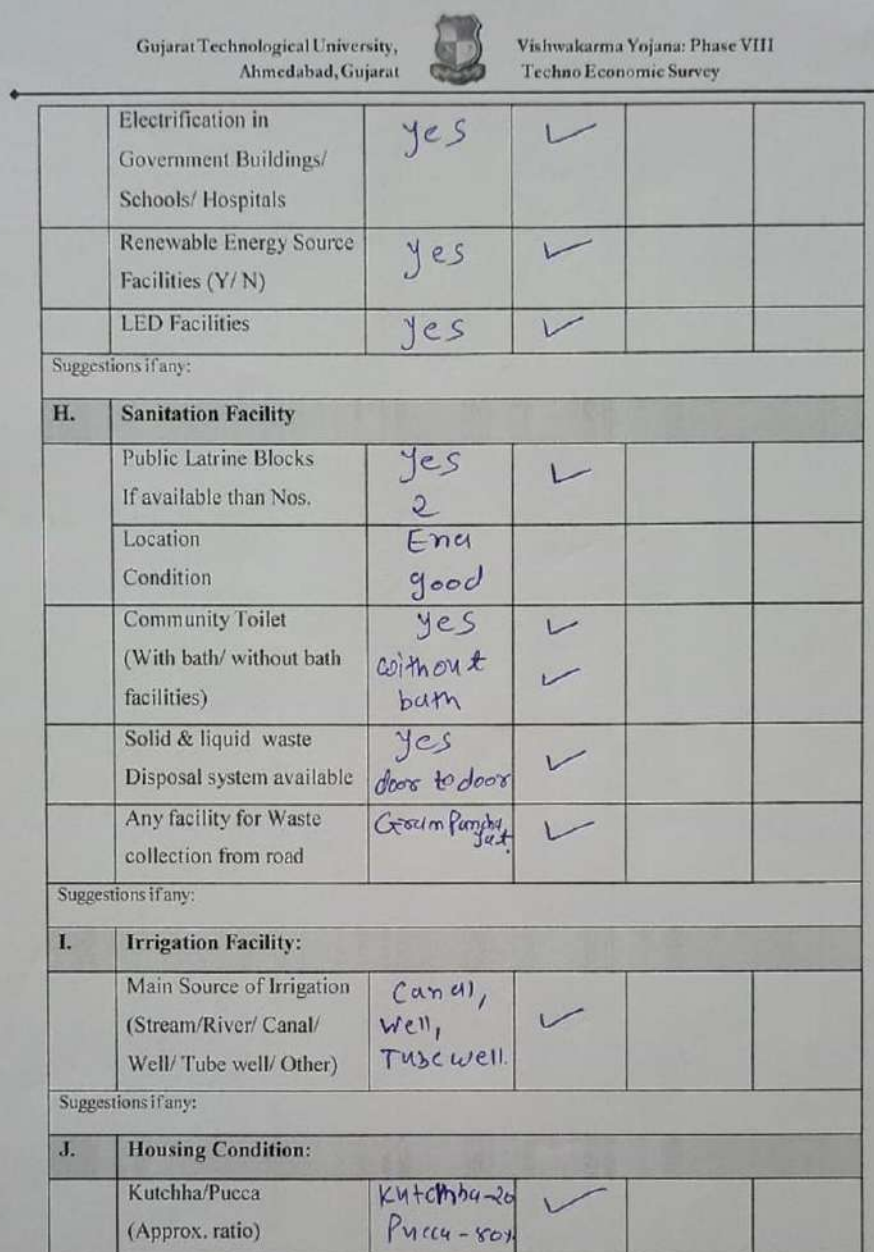 Gujarat Technological University,
Ahmedabad, Gujarat
Vishwakarma Yojana: Phase VIII
Techno Economic Survey
Electrification in
Government Buildings/
Schools/ Hospitals
yes ✓
Renewable Energy Source
Facilities (Y/ N)
yes ✓
LED Facilities yes ✓
Suggestions if any:
H. Sanitation Facility
Public Latrine Blocks yes ✓
If available than Nos. 2
Location Ena
Condition good
Community Toilet yes ✓
(With bath/ without bath without ✓
facilities) bath
Solid & liquid waste yes ✓
Disposal system available door to door
Any facility for Waste Gram Panchayat. ✓
collection from road
Suggestions if any:
I. Irrigation Facility:
Main Source of Irrigation Canal,
(Stream/River/ Canal/ Well, ✓
Well/ Tube well/ Other) Tube well.
Suggestions if any:
J. Housing Condition:
Kutchha/Pucca Kutchha-20 ✓
(Approx. ratio) Pucca - 80%